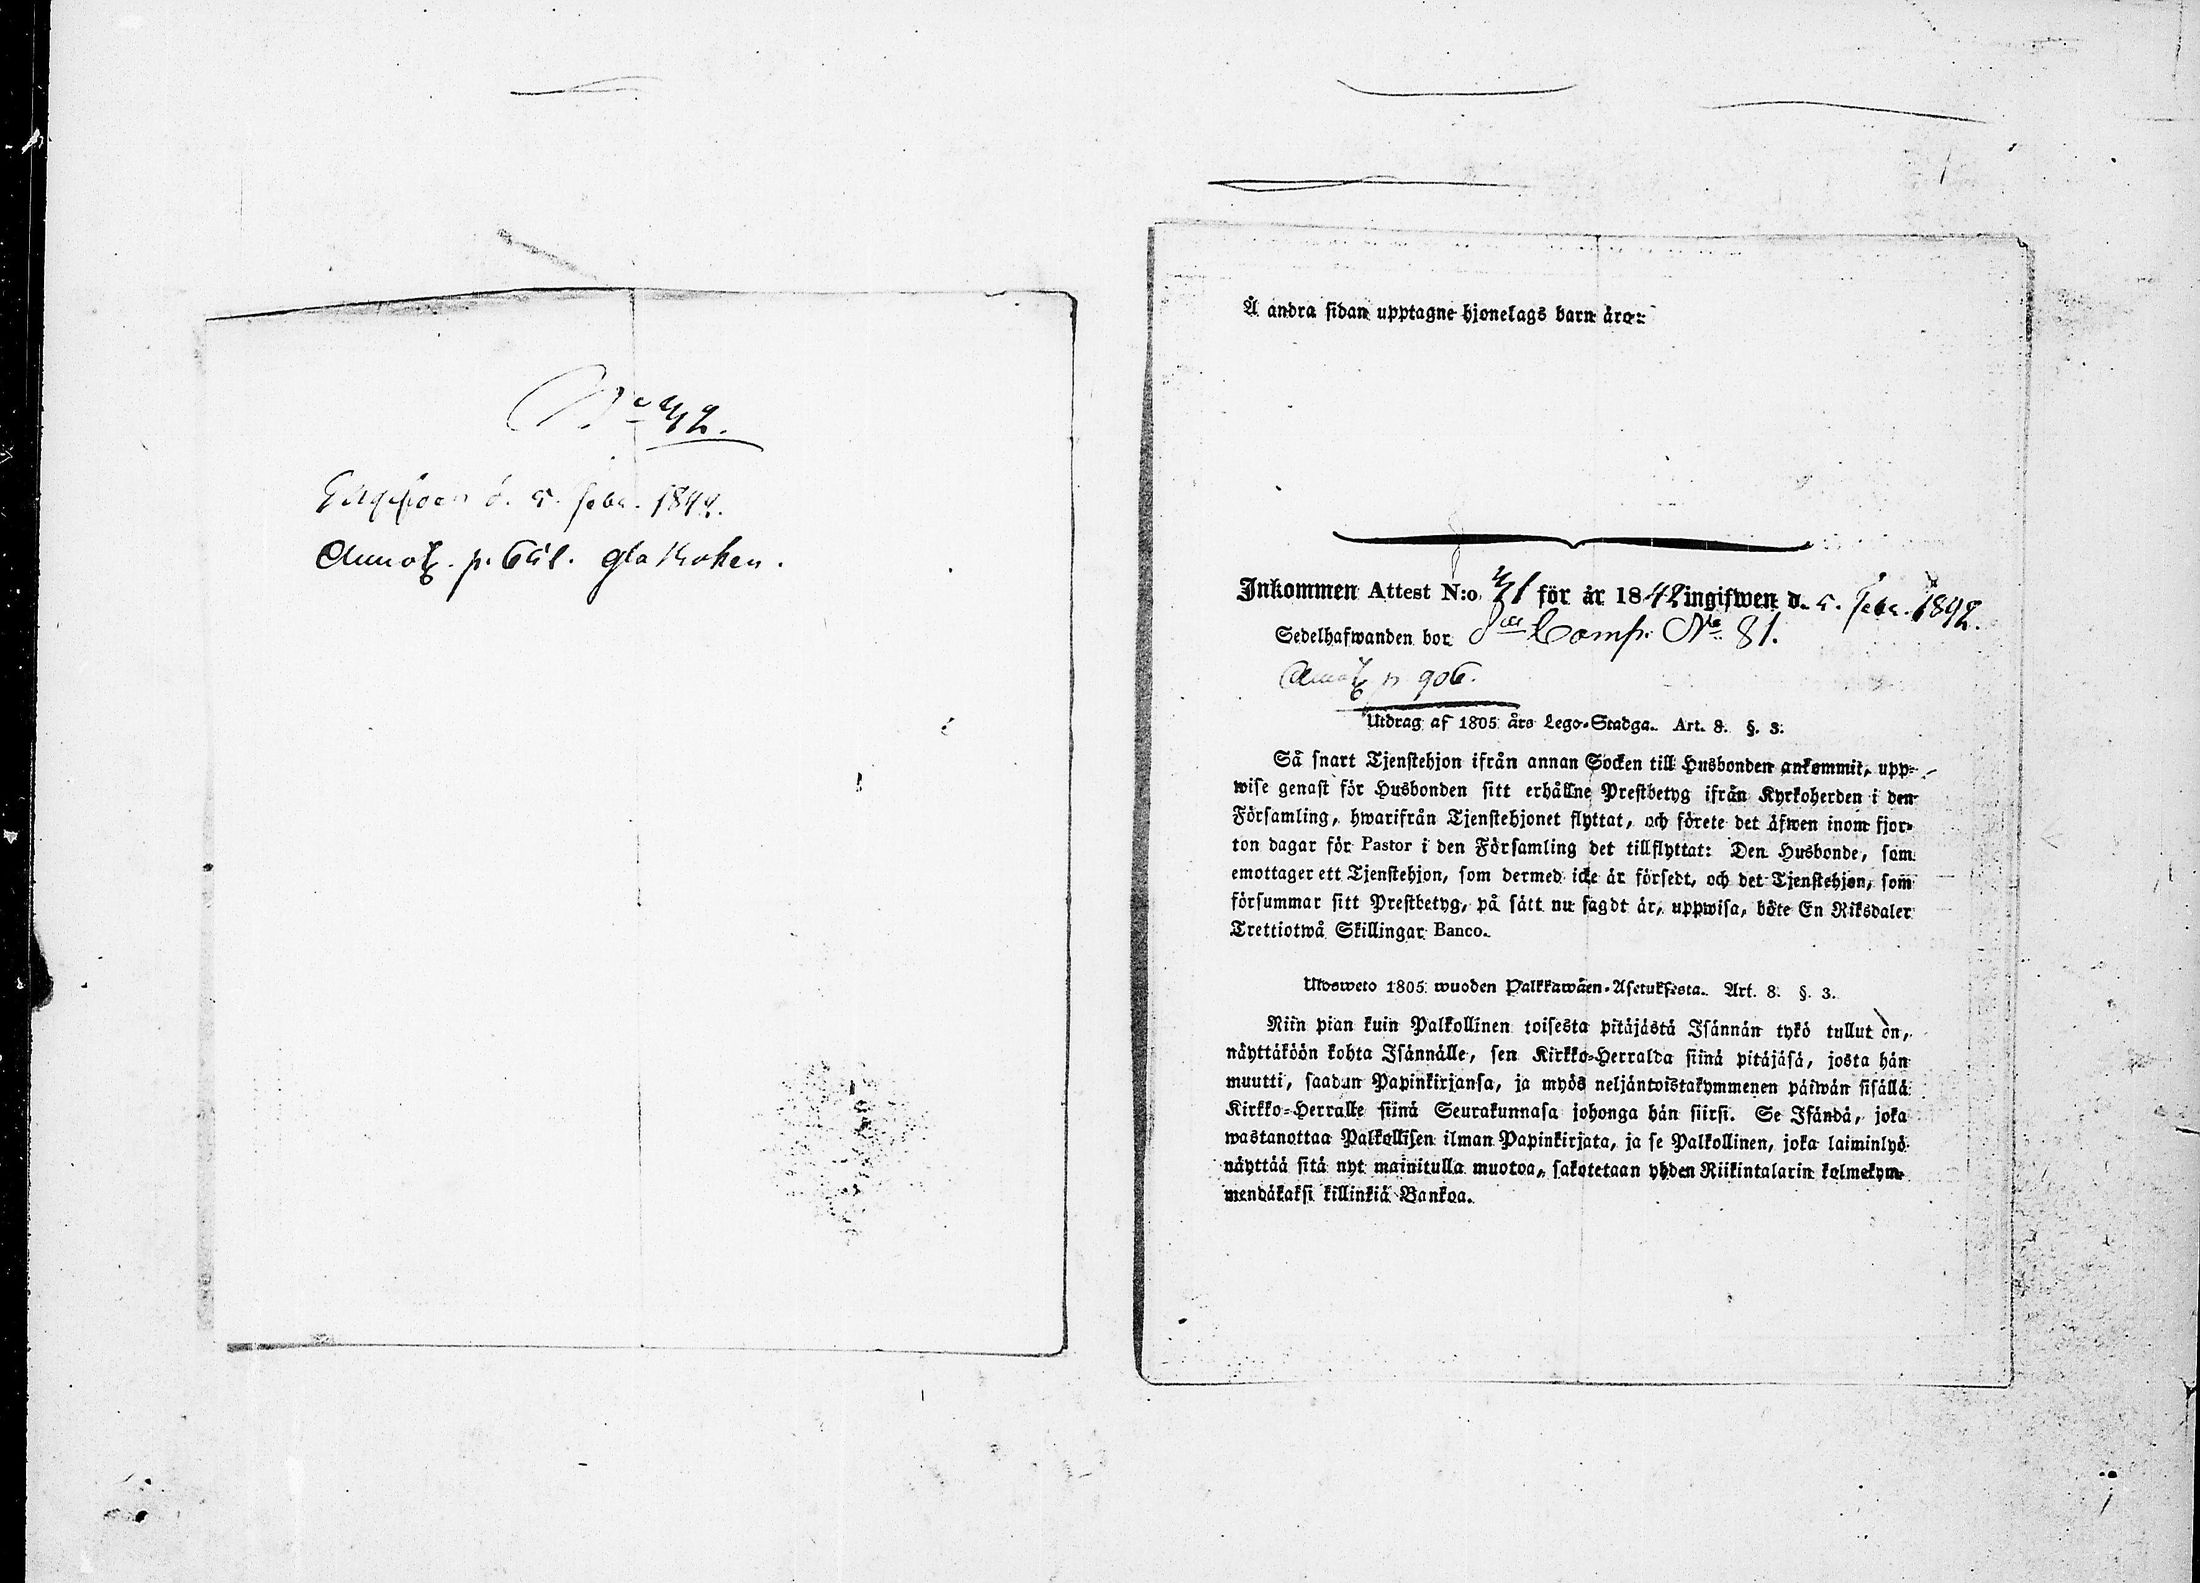 No 42.
Ingifven d. 5. Febr. 1842.
Annot. p. 631. gla boken.
Å andra sidan upptagne hjonelags barn äro:
Inkommen Attest N:o 41 för år 1842 ingifwen d. 5. Febr. 1842.
Sedelhafwanden bor Comp. No 81.
Annot p 906.
Utdrag af 1805 års Lego-Stadga. Art. 8. §. 3.
Så snart Tjenstehjon ifrån annan Socken till Husbonden ankommit, upp-
wise genast för Husbonden sitt erhållne Prestbetyg ifrån Kyrkoherden i den
Församling, hwarifrån Tjenstehjonet flyttat, och förete det äfwen inom fjor-
ton dagar för Pastor i den Församling det tillflyttat: Den Husbonde, som
emottager ett Tjenstehjon, som dermed icke är försedt, och det Tjenstehjon, som
försummar sitt Prestbetyg, på sätt nu sagdt är, uppwisa, böte En Riksdaler
Trettiotwå Skillingar Banco.
Ulosweto 1805 wuoden Palkkawäen-Asetuksesta. Art. 8. §. 3.
Niin pian kuin Palkollinen toisesta pitäjästä Isännän tykö tullut on,
näyttäköön kohta Isännälle, sen Kirkko-Herralda siinä pitäjäsä, josta hän
muutti, saadun Papinkirjansa, ja myös neljäntoistakymmenen päiwän sisällä
Kirkko-Herralle siinä Seurakunnasa johonga hän siirsi. Se Isändä, joka
wastanottaa Palkollisen ilman Papinkirjata, ja se Palkollinen, joka laiminlyö
näyttää sitä nyt mainitulla muotoa, sakotetaan yhden Riikintalarin kolmekym-
mendäkaksi killinkiä Bankoa.